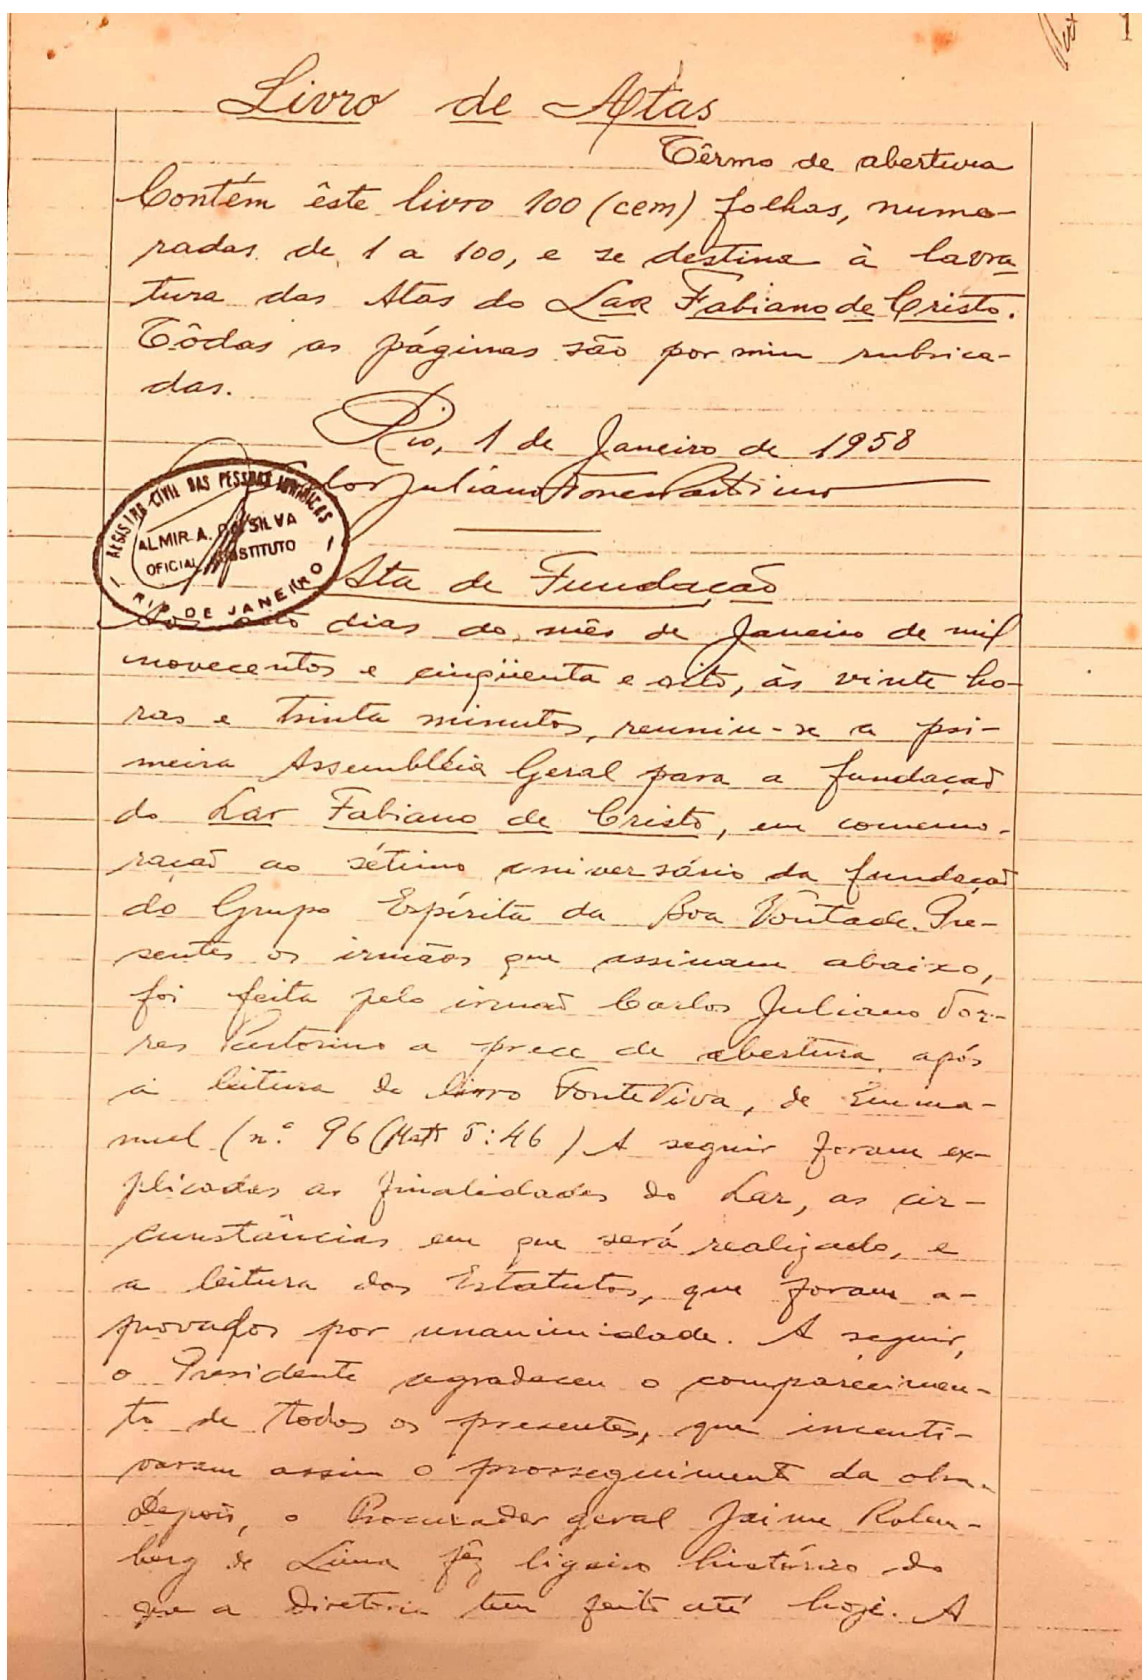 1
Livro de Atas
Têrmo de abertura
Contém êste livro 100 (cem) folhas, nume-
radas de 1 a 100, e se destina à lavra
tura das Atas do Lar Fabiano de Cristo.
Tôdas as páginas são por mim rubrica-
das.
Rio, 1 de Janeiro de 1958
Carlos Juliano Torres Pastorino
REGISTRO CIVIL DAS PESSOAS JURIDICAS
ALMIR A. DA SILVA
OFICIAL SUBSTITUTO
RIO DE JANEIRO
Ata de Fundação
Aos oito dias do mês de Janeiro de mil
novecentos e cinqüenta e oito, às vinte ho-
ras e trinta minutos, reuniu-se a pri-
meira Assembléia Geral para a fundação
do Lar Fabiano de Cristo, em comemo-
ração ao sétimo aniversário da fundação
do Grupo Espírita da Boa Vontade. Pre-
sentes os irmãos que assinam abaixo,
foi feita pelo irmão Carlos Juliano Tor-
res Pastorino a prece de abertura, após
a leitura do livro Fonte Viva, de Emma-
nuel (n.º 96 (Matt 5:46) A seguir foram ex-
plicadas as finalidades do Lar, as cir-
cunstâncias em que será realizado, e
a leitura dos Estatutos, que foram a-
provados por unanimidade. A seguir,
o Presidente agradeceu o comparecimen-
to de todos os presentes, que incenti-
varam assim o prosseguimento da obra.
Depois, o Procurador geral Jaime Rolem-
berg de Lima fêz ligeiro histórico do
que a Diretoria tem feito até hoje. A